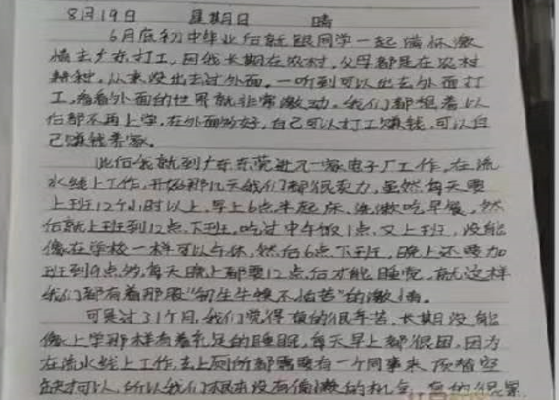 8月19日 星期日 晴
6月底初中毕业后就跟同学一起满怀激
情去广东打工，因我长期在农村，父母都是在农村
耕种，从来没出去过外面，一听到可以出去外面打
工，看看外面的世界就非常激动，我们都想着以
后都不再上学，在外面多好，自己可以打工赚钱，可以自
己赚钱养家。
此后我就到广东东莞进了一家电子厂工作，在流
水线上工作，开始那几天我们都很卖力，虽然每天要
上班12个小时以上，早上6点半起床，洗漱吃早餐，然
后就上班到12点下班，吃过中午饭1点又上班，没能
像在学校一样可以午休，然后6点下班，晚上还要加
班到9点多，每天晚上都要12点后才能睡觉，就这样
我们都有着那股"初生牛犊不怕苦"的激情。
可是过了1个月，我们觉得真的很辛苦，长期没能
像上学那样有着充足的睡眠，每天早上都很困，因为
在流水线上工作，去上厕所都需要有一个同事来顶替空
缺才可以，所以我们根本没有偷懒的机会，真的很累